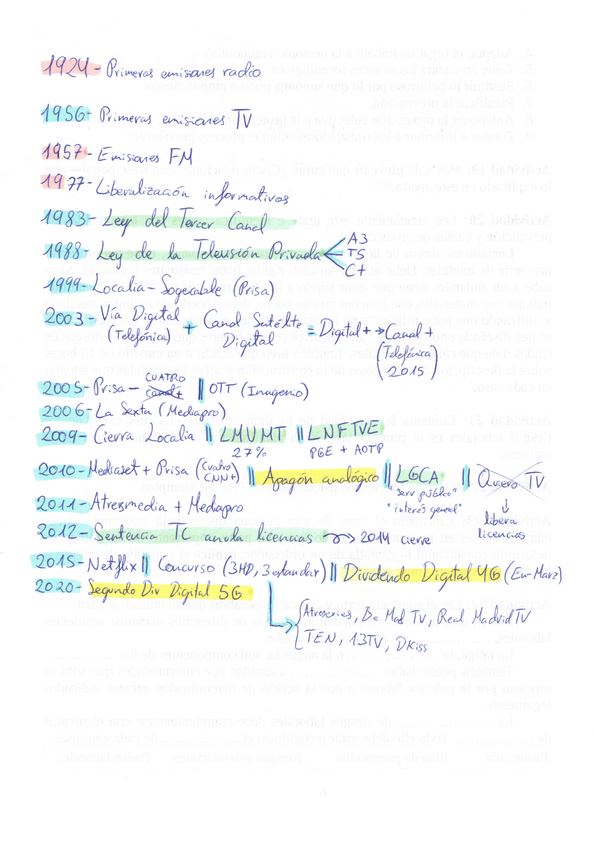 1924- Primeras emisiones radio
1956- Primeras emisiones TV
1957- Emisiones FM
1977- Liberalización informativos
1983- Ley del Tercer Canal
1988- Ley de la Televisión Privada
A3
T5
C+
1999- Localia - Sogecable (Prisa)
2003- Vía Digital + Canal Satélite = Digital+ → Canal +
(Telefónica) Digital (Telefónica)
2015
CUATRO
2005- Prisa - Canal+ || OTT (Imagenio)
2006- La Sexta (Mediapro)
2009- Cierra Localia || LMUMT || LNFTVE
27% PGE + AOTP
2010- Mediaset + Prisa (Cuatro CNN+) || Apagón analógico || LGCA || Quiero TV
"serv público"
"interés general"
↓
libera licencias
2011- Atresmedia + Mediapro
2012- Sentencia TC anula licencias → 2014 cierre
2015- Netflix || Concurso (3HD, 3 estandar) || Dividendo Digital 4G (En-Marz)
2020- Segundo Div Digital 5G
Atreseries, Be Mad TV, Real Madrid TV
TEN, 13TV, DKiss